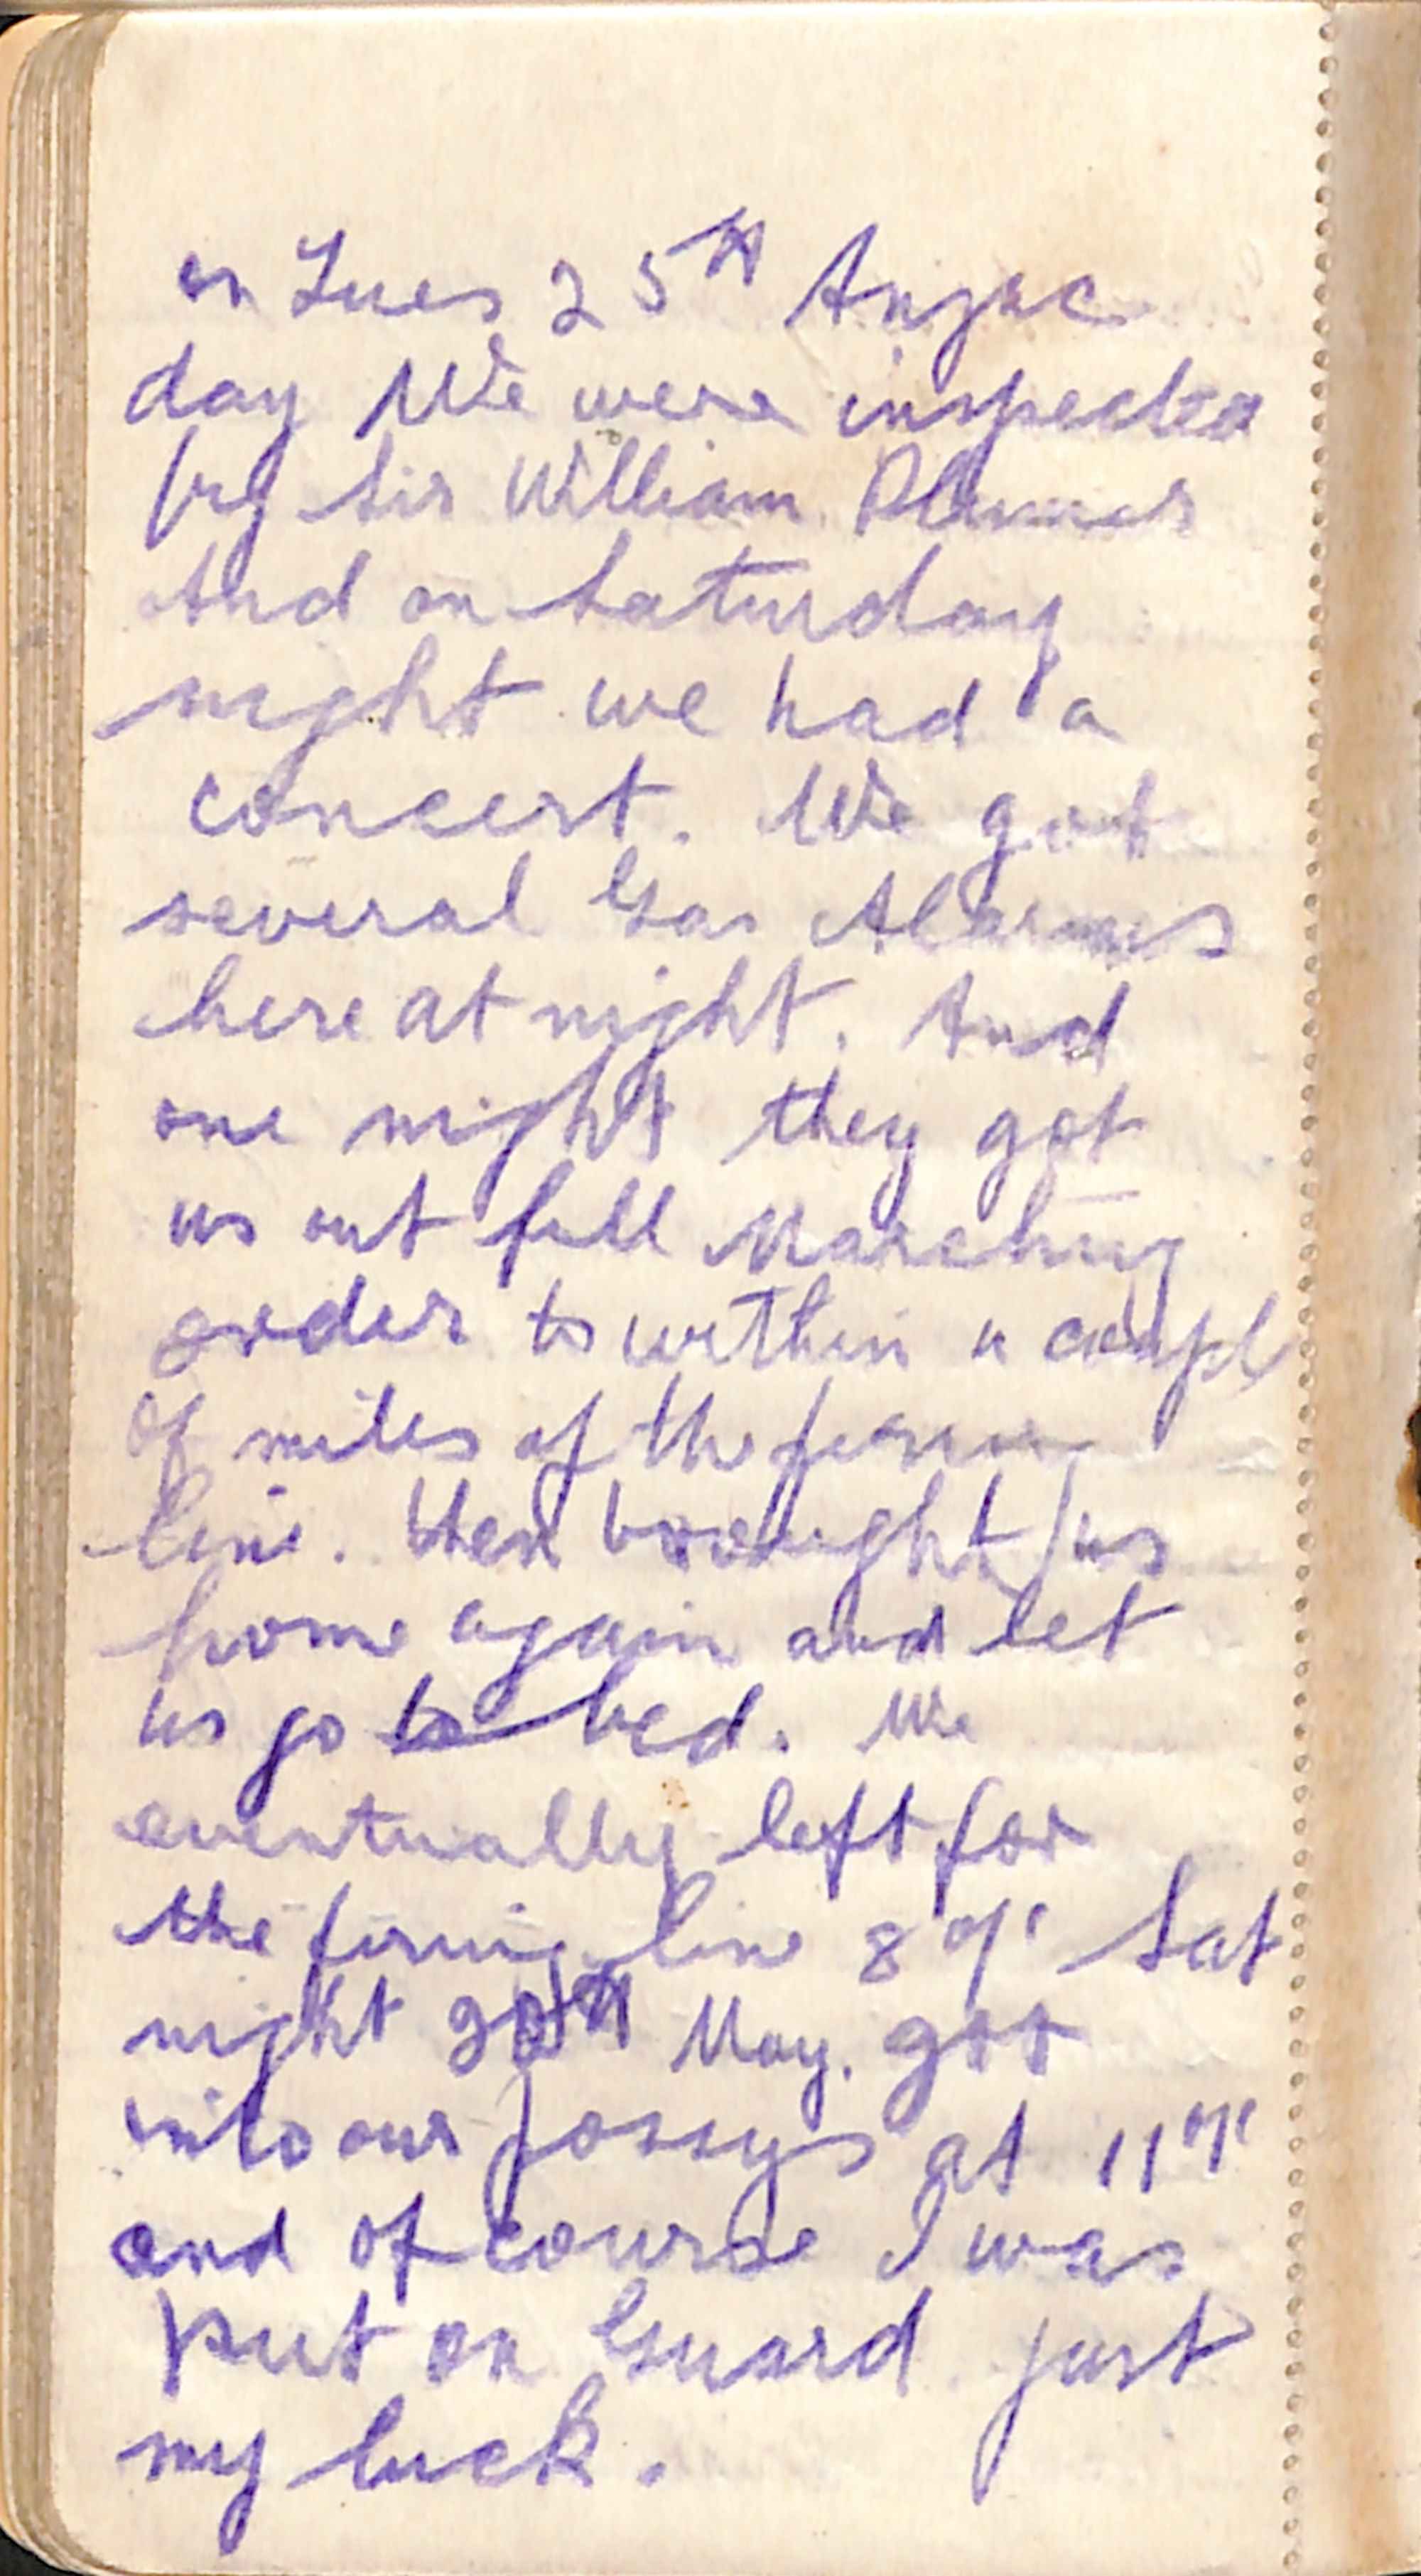 on Tues 25th Anzac
day We were inspected
by Sir William Plumer
And on Saturday
night we had a
concert. We got
several Gas Alarms
here at night. And
one night they got
us out full Marching
order to within a coupl
of miles of the firing
line. then brought us
home again and let
us go to bed. We
eventually left for
the firing line 8 o/c Sat
night 20th May. got
into our possys at 11 o/c
and of course I was
put on Guard just
my luck.